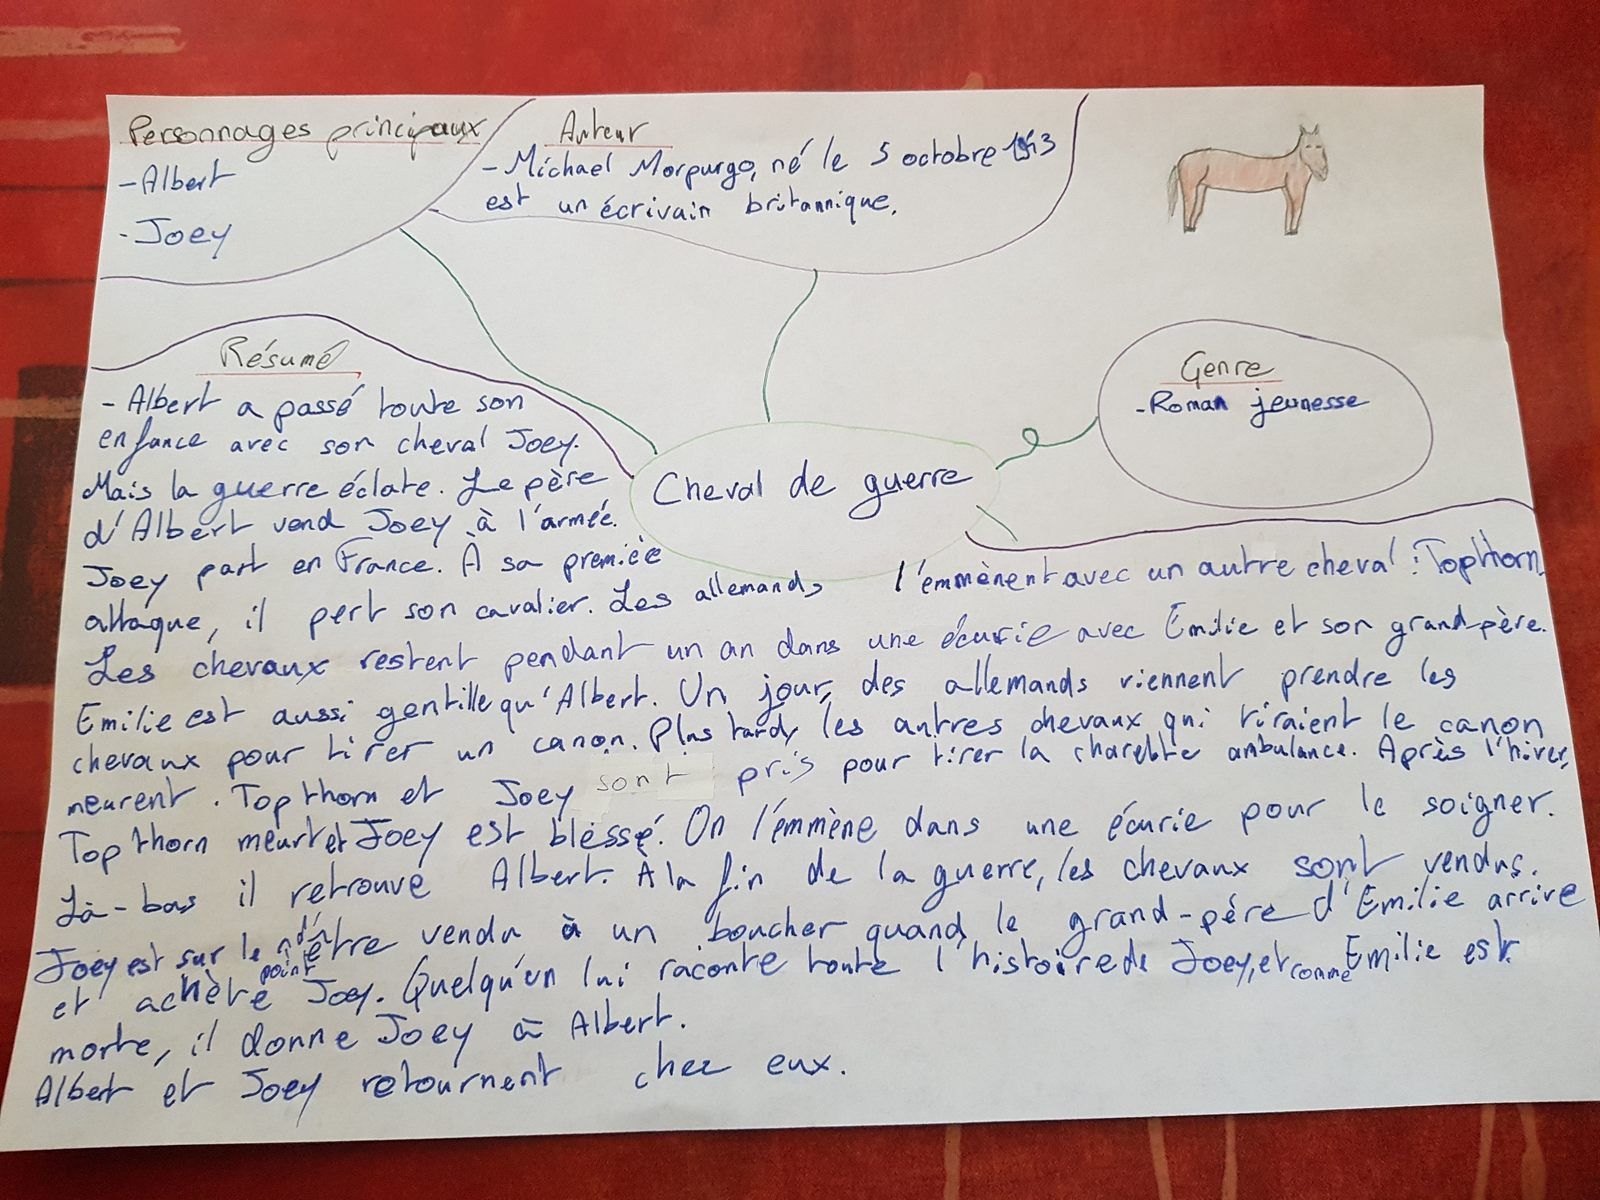 Personnages principaux
- Albert
- Joey
Auteur
- Michael Morpurgo, né le 5 octobre 1943
est un écrivain britannique.
Genre
- Roman jeunesse
Cheval de guerre
Résumé
- Albert a passé toute son
enfance avec son cheval Joey.
Mais la guerre éclate. Le père
d'Albert vend Joey à l'armée.
Joey part en France. À sa premièe
attaque, il pert son cavalier. Les allemands l'emmènent avec un autre cheval : Topthorn.
Les chevaux restent pendant un an dans une écurie avec Emilie et son grand-père.
Emilie est aussi gentille qu'Albert. Un jour, des allemands viennent prendre les
chevaux pour tirer un canon. Plus tard, les autres chevaux qui tiraient le canon
meurent. Topthorn et Joey sont pris pour tirer la charette ambulance. Après l'hiver,
Topthorn meurt et Joey est blessé. On l'emmène dans une écurie pour le soigner.
Là-bas il retrouve Albert. À la fin de la guerre, les chevaux sont vendus.
Joey est sur le point d'être vendu à un boucher quand le grand-père d'Emilie arrive
et achète Joey. Quelqu'un lui raconte toute l'histoire de Joey, et comme Emilie est
morte, il donne Joey à Albert.
Albert et Joey retournent chez eux.